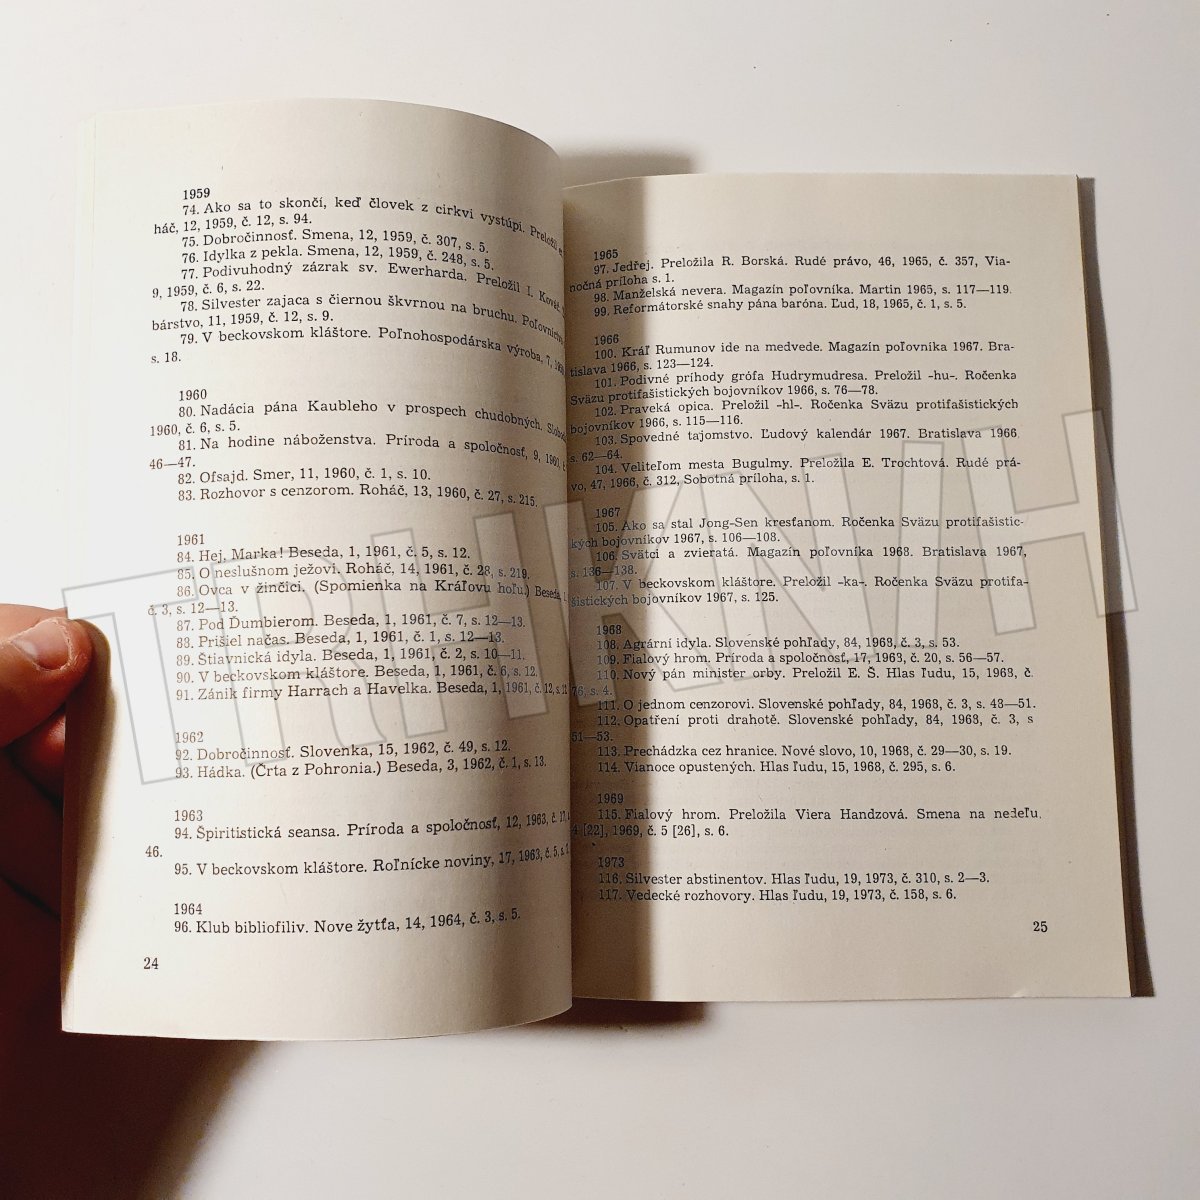 1959
74. Ako sa to skončí, keď človek z cirkvi vystúpi. Preložil
háč, 12, 1959, č. 12, s. 94.
75. Dobročinnosť. Smena, 12, 1959, č. 307, s. 5.
76. Idylka z pekla. Smena, 12, 1959, č. 248, s. 5.
77. Podivuhodný zázrak sv. Ewerharda. Preložil I. Kováč.
9, 1959, č. 6, s. 22.
78. Silvester zajaca s čiernou škvrnou na bruchu. Poľovníctvo
bárstvo, 11, 1959, č. 12, s. 9.
79. V beckovskom kláštore. Poľnohospodárska výroba, 7,
s. 18.
1960
80. Nadácia pána Kaubleho v prospech chudobných.
1960, č. 6, s. 5.
81. Na hodine náboženstva. Príroda a spoločnosť, 9, 1960,
46—47.
82. Ofsajd. Smer, 11, 1960, č. 1, s. 10.
83. Rozhovor s cenzorom. Roháč, 13, 1960, č. 27, s. 215.
1961
84. Hej, Marka! Beseda, 1, 1961, č. 5, s. 12.
85. O neslušnom ježovi. Roháč, 14, 1961, č. 28, s. 219.
86. Ovca v žinčici. (Spomienka na Kráľovu hoľu.) Beseda, 1,
č. 3, s. 12—13.
87. Pod Ďumbierom. Beseda, 1, 1961, č. 7, s. 12—13.
88. Prišiel načas. Beseda, 1, 1961, č. 1, s. 12—13.
89. Štiavnická idyla. Beseda, 1, 1961, č. 2, s. 10—11.
90. V beckovskom kláštore. Beseda, 1, 1961, č. 6, s. 12.
91. Zánik firmy Harrach a Havelka. Beseda, 1, 1961, č. 12, s. 12
1962
92. Dobročinnosť. Slovenka, 15, 1962, č. 49, s. 12.
93. Hádka. (Črta z Pohronia.) Beseda, 3, 1962, č. 1, s. 13.
1963
94. Špiritistická seansa. Príroda a spoločnosť, 12, 1963, č. 17,
46.
95. V beckovskom kláštore. Roľnícke noviny, 17, 1963, č. 5, s.
1964
96. Klub bibliofiliv. Nove žytťa, 14, 1964, č. 3, s. 5.
24
1965
97. Jedřej. Preložila R. Borská. Rudé právo, 46, 1965, č. 357, Via-
nočná príloha s. 1.
98. Manželská nevera. Magazín poľovníka. Martin 1965, s. 117—119.
99. Reformátorské snahy pána baróna. Ľud, 18, 1965, č. 1, s. 5.
1966
100. Kráľ Rumunov ide na medvede. Magazín poľovníka 1967. Bra-
tislava 1966, s. 123—124.
101. Podivné príhody grófa Hudrymudresa. Preložil -hu-. Ročenka
Sväzu protifašistických bojovníkov 1966, s. 76—78.
102. Praveká opica. Preložil -hl-. Ročenka Sväzu protifašistických
bojovníkov 1966, s. 115—116.
103. Spovedné tajomstvo. Ľudový kalendár 1967. Bratislava 1966
s. 62—64.
104. Veliteľom mesta Bugulmy. Preložila E. Trochtová. Rudé prá-
vo, 47, 1966, č. 312, Sobotná príloha, s. 1.
1967
105. Ako sa stal Jong-Sen kresťanom. Ročenka Sväzu protifašistic-
kých bojovníkov 1967, s. 106—108.
106. Svätci a zvieratá. Magazín poľovníka 1968. Bratislava 1967,
s. 136—138.
107. V beckovskom kláštore. Preložil -ka-. Ročenka Sväzu protifa-
šistických bojovníkov 1967, s. 125.
1968
108. Agrární idyla. Slovenské pohľady, 84, 1968, č. 3, s. 53.
109. Fialový hrom. Príroda a spoločnosť, 17, 1963, č. 20, s. 56—57.
110. Nový pán minister orby. Preložil E. Š. Hlas ľudu, 15, 1968, č.
76, s. 4.
111. O jednom cenzorovi. Slovenské pohľady, 84, 1968, č. 3, s. 48—51.
112. Opatření proti drahotě. Slovenské pohľady, 84, 1968, č. 3, s
51—53.
113. Prechádzka cez hranice. Nové slovo, 10, 1968, č. 29—30, s. 19.
114. Vianoce opustených. Hlas ľudu, 15, 1968, č. 295, s. 6.
1969
115. Fialový hrom. Preložila Viera Handzová. Smena na nedeľu,
4 [22], 1969, č. 5 [26], s. 6.
1973
116. Silvester abstinentov. Hlas ľudu, 19, 1973, č. 310, s. 2—3.
117. Vedecké rozhovory. Hlas ľudu, 19, 1973, č. 158, s. 6.
25
TRHKNIH